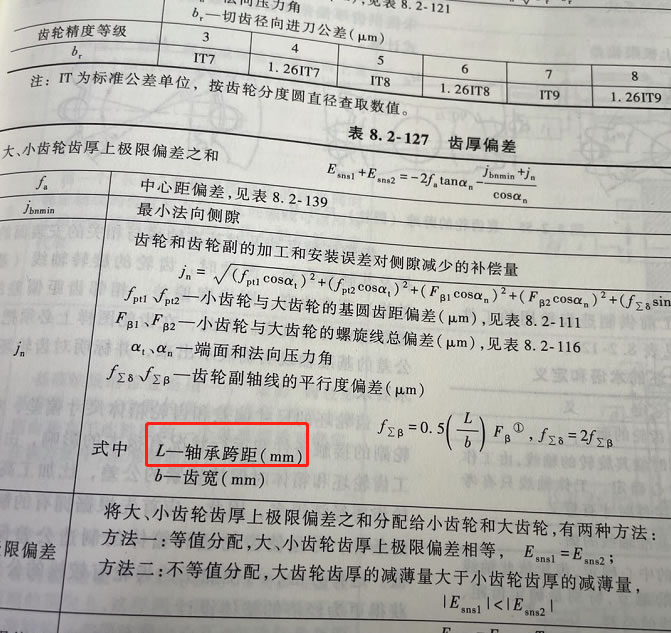 法向压力角
见表 8.2-121
b_r—切齿径向进刀公差(μm)
齿轮精度等级 3 4 5 6 7 8
b_r IT7 1.26IT7 IT8 1.26IT8 IT9 1.26IT9
注：IT为标准公差单位，按齿轮分度圆直径查取数值。
表 8.2-127 齿厚偏差
大、小齿轮齿厚上极限偏差之和 E_sns1+E_sns2=-2f_a tanα_n-(j_bnmin+j_n)/cosα_n
f_a 中心距偏差，见表 8.2-139
j_bnmin 最小法向侧隙
齿轮和齿轮副的加工和安装误差对侧隙减少的补偿量
j_n=√(f_pt1 cosα_t)²+(f_pt2 cosα_t)²+(F_β1 cosα_n)²+(F_β2 cosα_n)²+(f_Σδ sin
f_pt1、f_pt2—小齿轮与大齿轮的基圆齿距偏差(μm)，见表 8.2-111
F_β1、F_β2—小齿轮与大齿轮的螺旋线总偏差(μm)，见表 8.2-116
j_n α_t、α_n—端面和法向压力角
f_Σδ、f_Σβ—齿轮副轴线的平行度偏差(μm)
f_Σβ=0.5(L/b)F_β①，f_Σδ=2f_Σβ
式中 L—轴承跨距(mm)
b—齿宽(mm)
将大、小齿轮齿厚上极限偏差之和分配给小齿轮和大齿轮，有两种方法：
限偏差 方法一：等值分配，大、小齿轮齿厚上极限偏差相等， E_sns1=E_sns2；
方法二：不等值分配，大齿轮齿厚的减薄量大于小齿轮齿厚的减薄量，
|E_sns1|<|E_sns2|